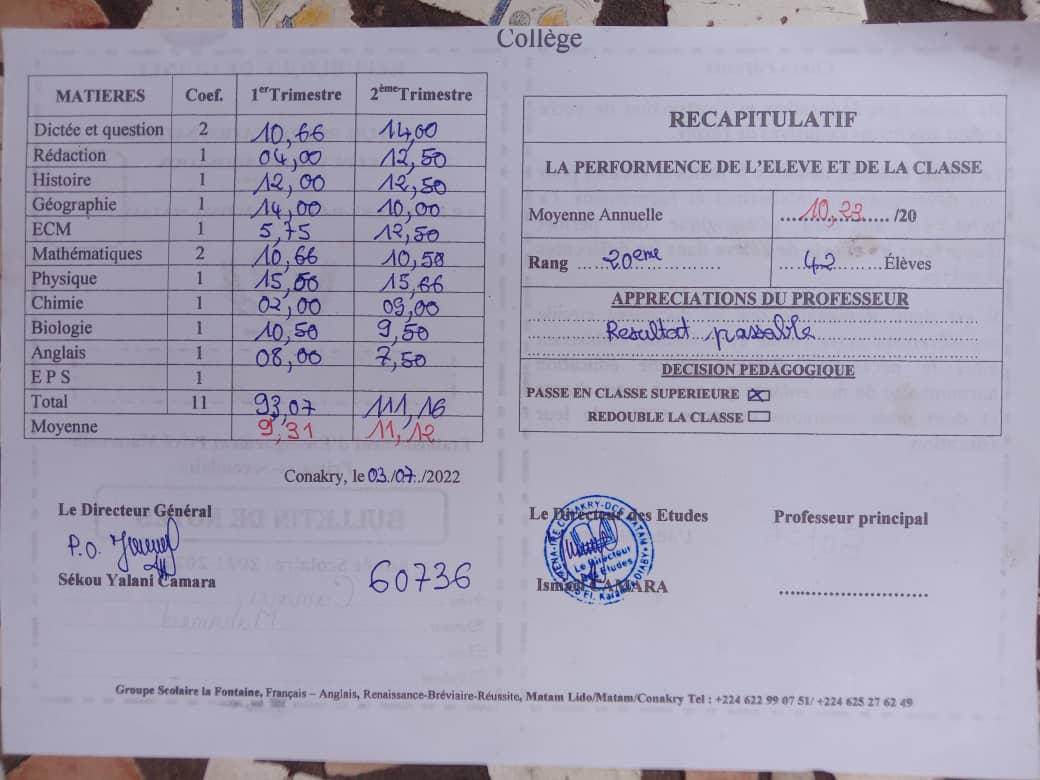 Collège
MATIERES Coef. 1erTrimestre 2èmeTrimestre
Dictée et question 2 10,66 14,00
Rédaction 1 04,00 12,50
Histoire 1 12,00 12,50
Géographie 1 14,00 10,00
ECM 1 5,75 12,50
Mathématiques 2 10,66 10,50
Physique 1 15,50 15,66
Chimie 1 02,00 09,00
Biologie 1 10,50 9,50
Anglais 1 08,00 7,50
E P S 1
Total 11 93,07 111,16
Moyenne 9,31 11,12
Conakry, le 03/07/2022
Le Directeur Général
P.O.
Sékou Yalani Camara
60736
RECAPITULATIF
LA PERFORMENCE DE L'ELEVE ET DE LA CLASSE
Moyenne Annuelle ...10,23... /20
Rang ...20ème... ...42...Élèves
APPRECIATIONS DU PROFESSEUR
Resultat passable
DECISION PEDAGOGIQUE
PASSE EN CLASSE SUPERIEURE
REDOUBLE LA CLASSE
Le Directeur des Etudes Professeur principal
Le Directeur
Des Etudes
CAMARA
Groupe Scolaire la Fontaine, Français – Anglais, Renaissance-Bréviaire-Réussite, Matam Lido/Matam/Conakry Tel : +224 622 99 07 51/ +224 625 27 62 49